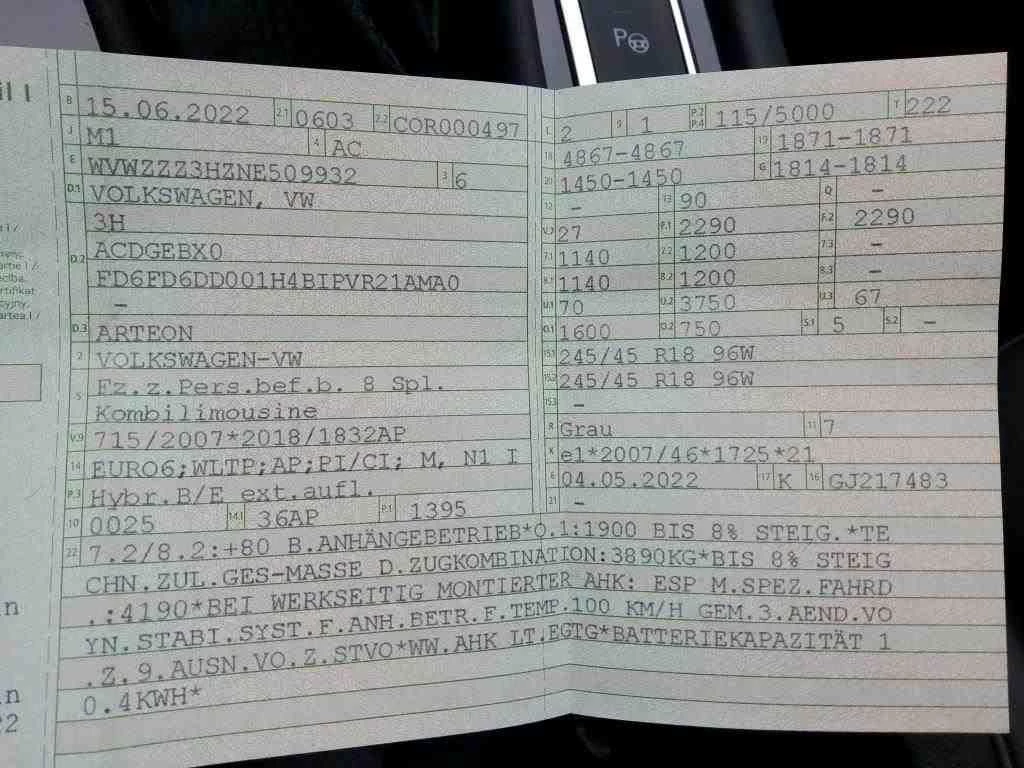 il I
B 15.06.2022 2.1 0603 2.2 COR000497
J M1 4 AC
E WVWZZZ3HZNE509932 3 6
D.1 VOLKSWAGEN, VW
3H
D.2 ACDGEBX0
FD6FD6DD001H4BIPVR21AMA0
-
D.3 ARTEON
2 VOLKSWAGEN-VW
5 Fz.z.Pers.bef.b. 8 Spl.
Kombilimousine
V.9 715/2007*2018/1832AP
14 EURO6;WLTP;AP;PI/CI; M, N1 I
P.3 Hybr.B/E ext.aufl.
10 0025 14.1 36AP P.1 1395
L 2 9 1 P.2 P.4 115/5000 T 222
18 4867-4867 19 1871-1871
20 1450-1450 G 1814-1814
12 - 13 90 Q -
V.7 27 F.1 2290 F.2 2290
7.1 1140 7.2 1200 7.3 -
8.1 1140 8.2 1200 8.3 -
U.1 70 U.2 3750 U.3 67
O.1 1600 O.2 750 S.1 5 S.2 -
15.1 245/45 R18 96W
15.2 245/45 R18 96W
15.3 -
R Grau 11 7
K e1*2007/46*1725*21
6 04.05.2022 17 K 16 GJ217483
21 -
22 7.2/8.2:+80 B.ANHÄNGEBETRIEB*O.1:1900 BIS 8% STEIG.*TE
CHN.ZUL.GES-MASSE D.ZUGKOMBINATION:3890KG*BIS 8% STEIG
.:4190*BEI WERKSEITIG MONTIERTER AHK: ESP M.SPEZ.FAHRD
YN.STABI.SYST.F.ANH.BETR.F.TEMP.100 KM/H GEM.3.AEND.VO
.Z.9.AUSN.VO.Z.STVO*WW.AHK LT.EGTG*BATTERIEKAPAZITÄT 1
0.4KWH*
P